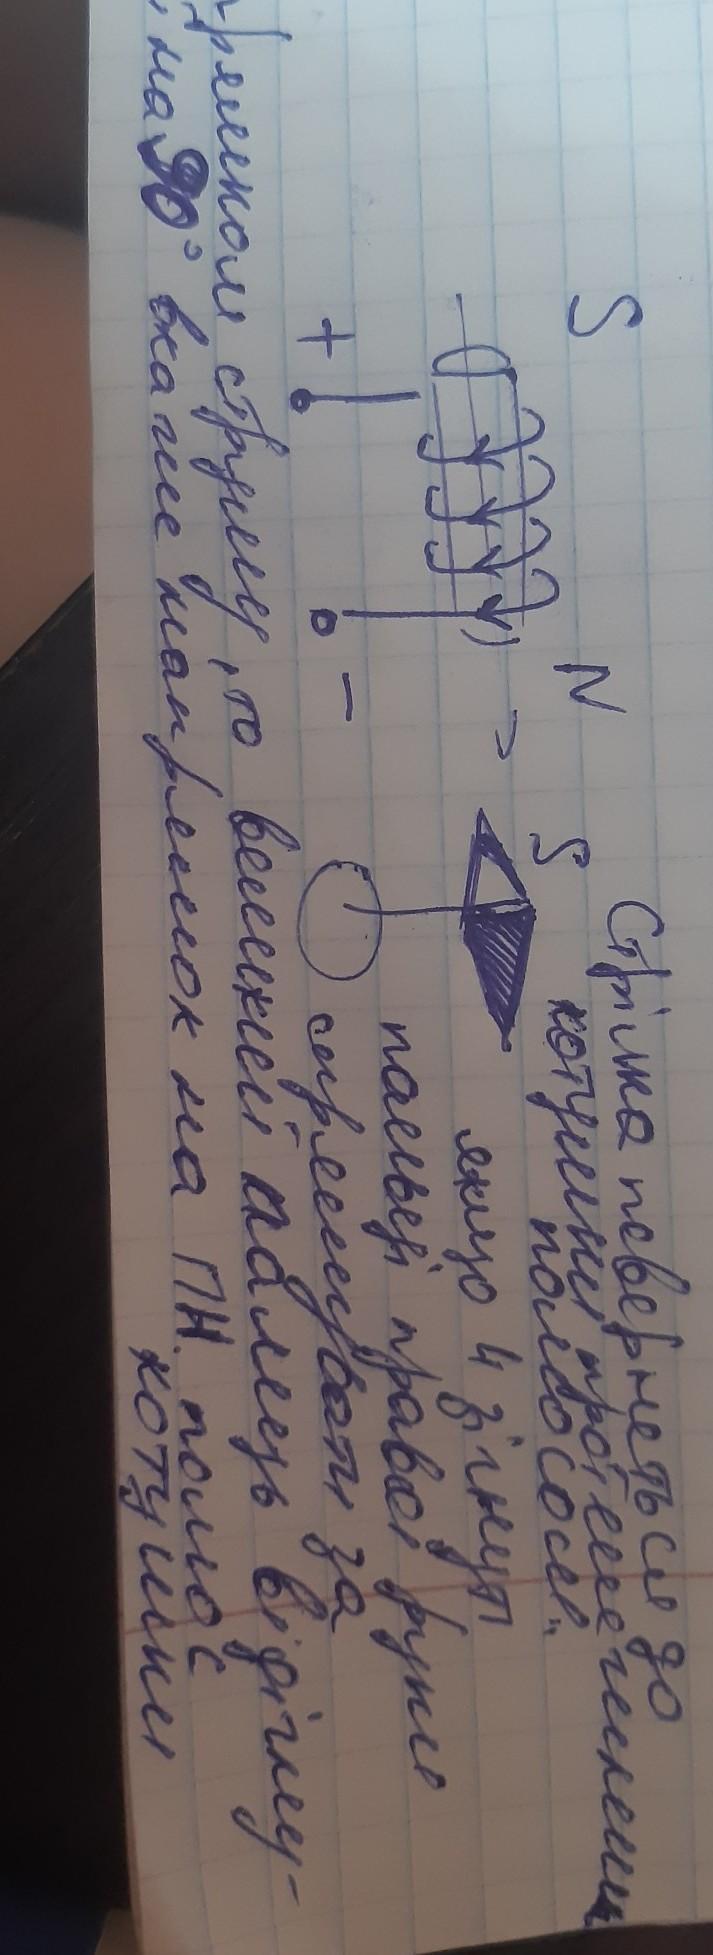 S N
S
Стрілка повернеться до
котушки протилежним
полюсом.
якщо 4 зігнут
пальці правої руки
спрямувати за
+ -
прямком струму, то великий палець відігну-
на 90° вкаже напрямок на ПН. полюс
котушки